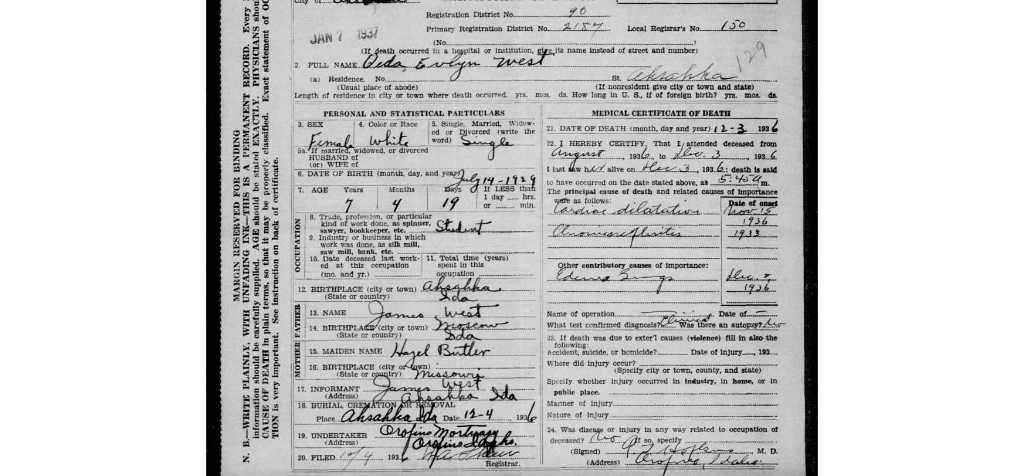 City of
Registration District No. 90
JAN 7 1937
Primary Registration District No. 2187 Local Regisrar's No. 150
(No.
(If death occurred in a hospital or institution, give its name instead of street and number)
129
2. FULL NAME Oeda Evlyn West
(a) Residence. No. St. Ahsahka
(Usual place of abode) (If nonresident give city or town and state)
Length of residence in city or town where death occurred. yrs. mos. ds. How long in U. S., if of foreign birth? yrs. mos. ds.
PERSONAL AND STATISTICAL PARTICULARS
3. SEX 4. Color or Race 5. Single, Married, Widow-
ed or Divorced (write the
word)
Female White Single
5a. If married, widowed, or divorced
HUSBAND of
(or) WIFE of
6. DATE OF BIRTH (month, day, and year) July 14-1929
7. AGE Years Months Days If LESS than
1 day hrs.
or min.
7 4 19
OCCUPATION
8. Trade, profession, or particular
kind of work done, as spinner,
sawyer, bookkeeper, etc. Student
9. Industry or business in which
work was done, as silk mill,
saw mill, bank, etc.
10. Date deceased last work-
ed at this occupation
(mo. and yr.)
11. Total time (years)
spent in this
occupation
12. BIRTHPLACE (city or town) Ahsahka
(State or country) Ida
FATHER
13. NAME James West
14. BIRTHPLACE (city or town) Moscow
(State or country) Ida
MOTHER
15. MAIDEN NAME Hazel Butler
16. BIRTHPLACE (city or town)
(State or country) Missouri
17. INFORMANT James West
(Address) Ahsahka Ida
18. BURIAL, CREMATION OR REMOVAL
Place Ahsahka Ida Date 12-4 1936
19. UNDERTAKER Orofino Mortuary
(Address) Orofino Idaho.
20. FILED 193
Registrar.
MEDICAL CERTIFICATE OF DEATH
21. DATE OF DEATH (month, day and year) 12-3 1936
22. I HEREBY CERTIFY, That I attended deceased from
August 1936 to Dec. 3 1936
I last saw h alive on Dec 3, 1936; death is said
to have occurred on the date stated above, at 5:45 m.
The principal cause of death and related causes of importance
were as follows: Date of onset
Cardiac dilatation Nov 15
1936
1933
Other contributory causes of importance:
Edema Lungs Dec. 2,
1936
Name of operation Date of
What test confirmed diagnosis? Clinical Was there an autopsy? No
23. If death was due to exter'l causes (violence) fill in also the
following:
Accident, suicide, or homicide? Date of injury 193
Where did injury occur?
(Specify city or town, county, and state)
Specify whether injury occurred in industry, in home, or in
public place.
Manner of injury
Nature of injury
24. Was disease or injury in any way related to occupation of
deceased? No If so, specify
(Signed) M. D.
(Address) Orofino, Idaho
MARGIN RESERVED FOR BINDING
N. B.—WRITE PLAINLY, WITH UNFADING INK—THIS IS A PERMANENT RECORD. Every
information should be carefully supplied. AGE should be stated EXACTLY. PHYSICIANS shou
CAUSE OF DEATH in plain terms, so that it may be properly classified. Exact statement of OC
TION is very important. See instruction on back of certificate.